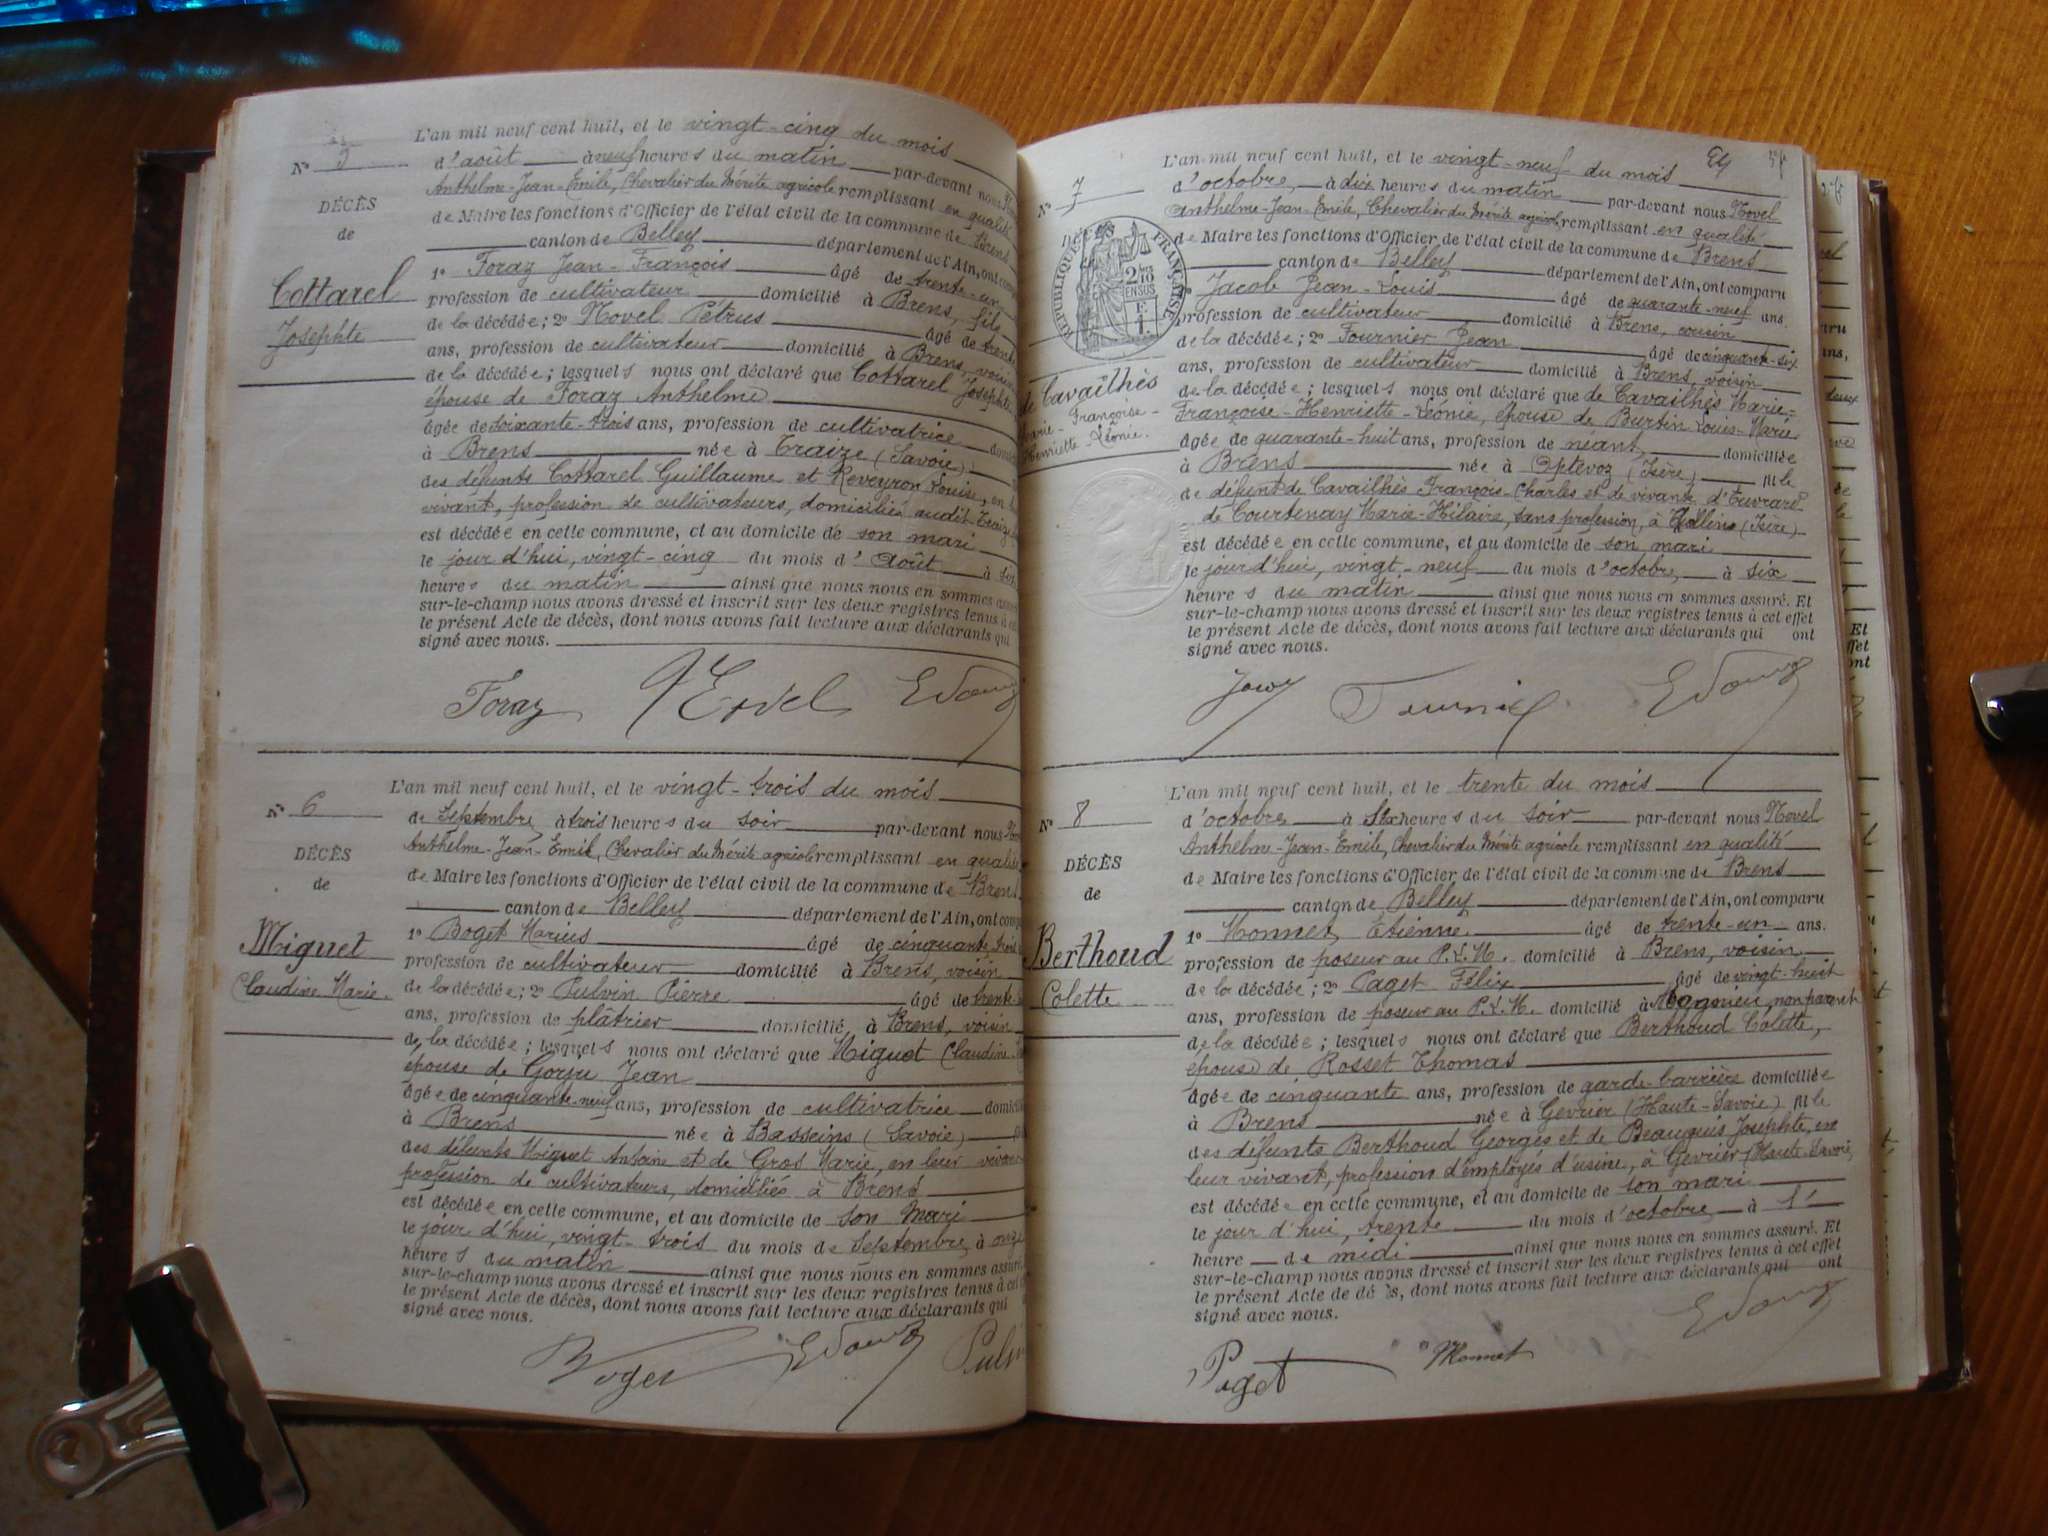 N° 5
DÉCÈS
de
Cottarel
Josephte
L'an mil neuf cent huit, et le vingt-cinq du mois
d'août à neuf heures du matin par-devant nous
Anthelme-Jean-Emile, Chevalier du Mérite agricole remplissant en qualité
de Maire les fonctions d'Officier de l'état civil de la commune de Brens
canton de Belley département de l'Ain, ont comp
1° Foraz Jean-François âgé de trente-un
profession de cultivateur domicilié à Brens, fils
de la décédée; 2° Novel Pétrus âgé de trente
ans, profession de cultivateur domicilié à Brens, voisin
de la décédée; lesquels nous ont déclaré que Cottarel Josephte
épouse de Foraz Anthelme
âgée de soixante-trois ans, profession de cultivatrice domici
à Brens née à Traize (Savoie)
des défunts Cottarel Guillaume et Reveyron Louise, en
vivant, profession de cultivateurs, domiciliés audit Traize
est décédée en cette commune, et au domicile de son mari
le jour d'hui, vingt-cinq du mois d'Août à six
heures du matin ainsi que nous nous en sommes assu
sur-le-champ nous avons dressé et inscrit sur les deux registres tenus à cet
le présent Acte de décès, dont nous avons fait lecture aux déclarants qui
signé avec nous.
Foraz Novel
N° 6
DÉCÈS
de
Miguet
Claudine Marie.
L'an mil neuf cent huit, et le vingt-trois du mois
de Septembre à trois heures du soir par-devant nous
Anthelme-Jean-Emile, Chevalier du Mérite agricole remplissant en qualité
de Maire les fonctions d'Officier de l'état civil de la commune de Brens
canton de Belley département de l'Ain, ont comp
1° Boget Marius âgé de cinquante
profession de cultivateur domicilié à Brens, voisin
de la décédée; 2° Pulvin Pierre âgé de trente
ans, profession de plâtrier domicilié à Brens, voisin
de la décédée; lesquels nous ont déclaré que Miguet Claudine
épouse de Gorju Jean
âgée de cinquante-neuf ans, profession de cultivatrice domicili
à Brens née à Basseins (Savoie)
des défunts Miguet Antoine et de Gros Marie, en leur vivant
profession de cultivateurs, domiciliés à Brens
est décédée en cette commune, et au domicile de son Mari
le jour d'hui, vingt-trois du mois de Septembre, à onze
heures du matin ainsi que nous nous en sommes assuré
sur-le-champ nous avons dressé et inscrit sur les deux registres tenus à cet
le présent Acte de décès, dont nous avons fait lecture aux déclarants qui
signé avec nous.
Boget Pulvi
24
N° 7
RÉPUBLIQUE FRANÇAISE
2/10
EN SUS
de Cavailhès
Marie-Françoise-
Henriette-Léonie.
L'an mil neuf cent huit, et le vingt-neuf du mois
d'octobre, à dix heures du matin par-devant nous Novel
Anthelme-Jean-Emile, Chevalier du Mérite agricole remplissant en qualité
de Maire les fonctions d'Officier de l'état civil de la commune de Brens
canton de Belley département de l'Ain, ont comparu
Jacob Jean-Louis âgé de quarante-neuf ans.
profession de cultivateur domicilié à Brens, cousin
de la décédée; 2° Fournier Jean âgé de cinquante-six
ans, profession de cultivateur domicilié à Brens, voisin
de la décédée; lesquels nous ont déclaré que de Cavailhès Marie-
Françoise-Henriette-Léonie, épouse de Burtin Louis-Marie
âgée de quarante-huit ans, profession de néant, domiciliée
à Brens née à Optevoz (Isère) fille
de défunt de Cavailhès François-Charles et de vivante d'Euvrard
de Courtenay Marie-Hilaire, sans profession, à (Isère)
est décédée en cette commune, et au domicile de son mari
le jour d'hui, vingt-neuf du mois d'octobre, à six
heures du matin ainsi que nous nous en sommes assuré. Et
sur-le-champ nous avons dressé et inscrit sur les deux registres tenus à cet effet
le présent Acte de décès, dont nous avons fait lecture aux déclarants qui ont
signé avec nous.
N° 8
DÉCÈS
de
Berthoud
Colette
L'an mil neuf cent huit, et le trente du mois
d'octobre à Six heures du soir par-devant nous Novel
Anthelme-Jean-Emile, Chevalier du Mérite agricole remplissant en qualité
de Maire les fonctions d'Officier de l'état civil de la commune de Brens
canton de Belley département de l'Ain, ont comparu
1° Monnet Etienne âgé de trente-un ans.
profession de poseur au P.L.M. domicilié à Brens, voisin
de la décédée; 2° Paget Félix âgé de vingt-huit
ans, profession de poseur au P.L.M. domicilié à Magnieu, non parent
de la décédée; lesquels nous ont déclaré que Berthoud Colette,
épouse de Rosset Thomas
âgée de cinquante ans, profession de garde-barrière domiciliée
à Brens née à Gevrier (Haute-Savoie) fille
des défunts Berthoud Georges et de Beauquis Josephte, en
leur vivant, profession d'employés d'usine, à Gevrier (Haute-Savoie)
est décédée en cette commune, et au domicile de son mari
le jour d'hui, trente du mois d'octobre, à 1'
heure de midi ainsi que nous nous en sommes assuré. Et
sur-le-champ nous avons dressé et inscrit sur les deux registres tenus à cet effet
le présent Acte de décès, dont nous avons fait lecture aux déclarants qui ont
signé avec nous.
Paget Monnet